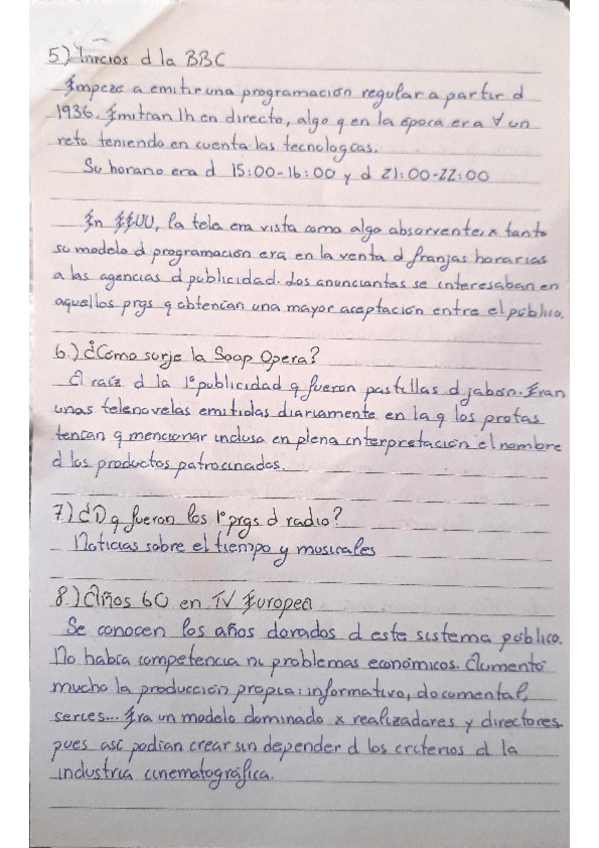 5) Inicios d la BBC
Empeze a emitir una programación regular a partir d
1936. Emitían 1h en directo, algo q en la época era ∀ un
reto teniendo en cuenta las tecnologías.
Su horario era d 15:00-16:00 y d 21:00-22:00
En EEUU, la tele era vista como algo absorvente, x tanto
su modelo d programación era en la venta d franjas horarias
a las agencias d publicidad. Los anunciantes se interesaban en
aquellos prgs q obtenían una mayor aceptación entre el público.
6.) ¿Cómo surje la Soap Opera?
A raíz d la 1º publicidad q fueron pastillas d jabón. Eran
unas telenovelas emitidas diariamente en la q los protas
tenían q mencionar incluso en plena interpretación el nombre
d los productos patrocinados.
7.) ¿D q fueron los 1º prgs d radio?
Noticias sobre el tiempo y musicales
8.) Años 60 en TV Europea
Se conocen los años dorados d este sistema público.
No había competencia ni problemas económicos. Aumento
mucho la producción propia: informativo, documental,
series... Era un modelo dominado x realizadores y directores
pues así podían crear sin depender d los criterios d la
industria cinematográfica.